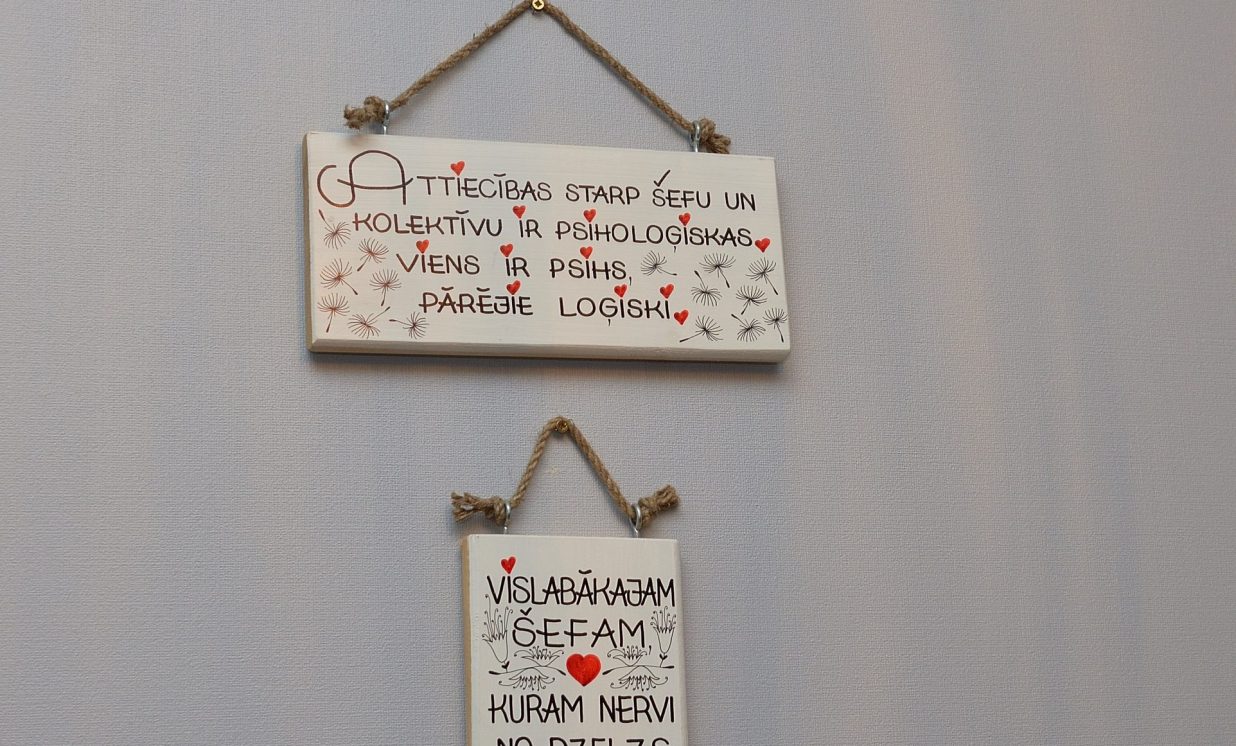 ATTIECĪBAS STARP ŠEFU UN
KOLEKTĪVU IR PSIHOLOĢISKAS.
VIENS IR PSIHS,
PĀRĒJIE LOĢISKI.
VISLABĀKAJAM
ŠEFAM,
KURAM NERVI
NO DZELZS